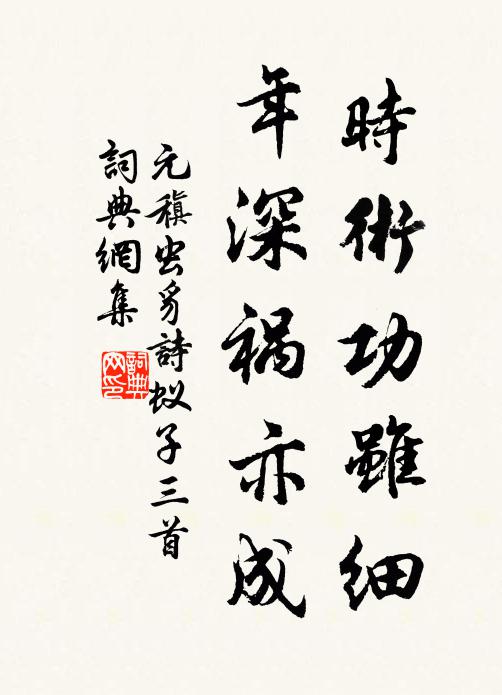 時術功雖細
年深祸亦成
元稹虫豸詩蚁子三首
詞典網集
詞典网印